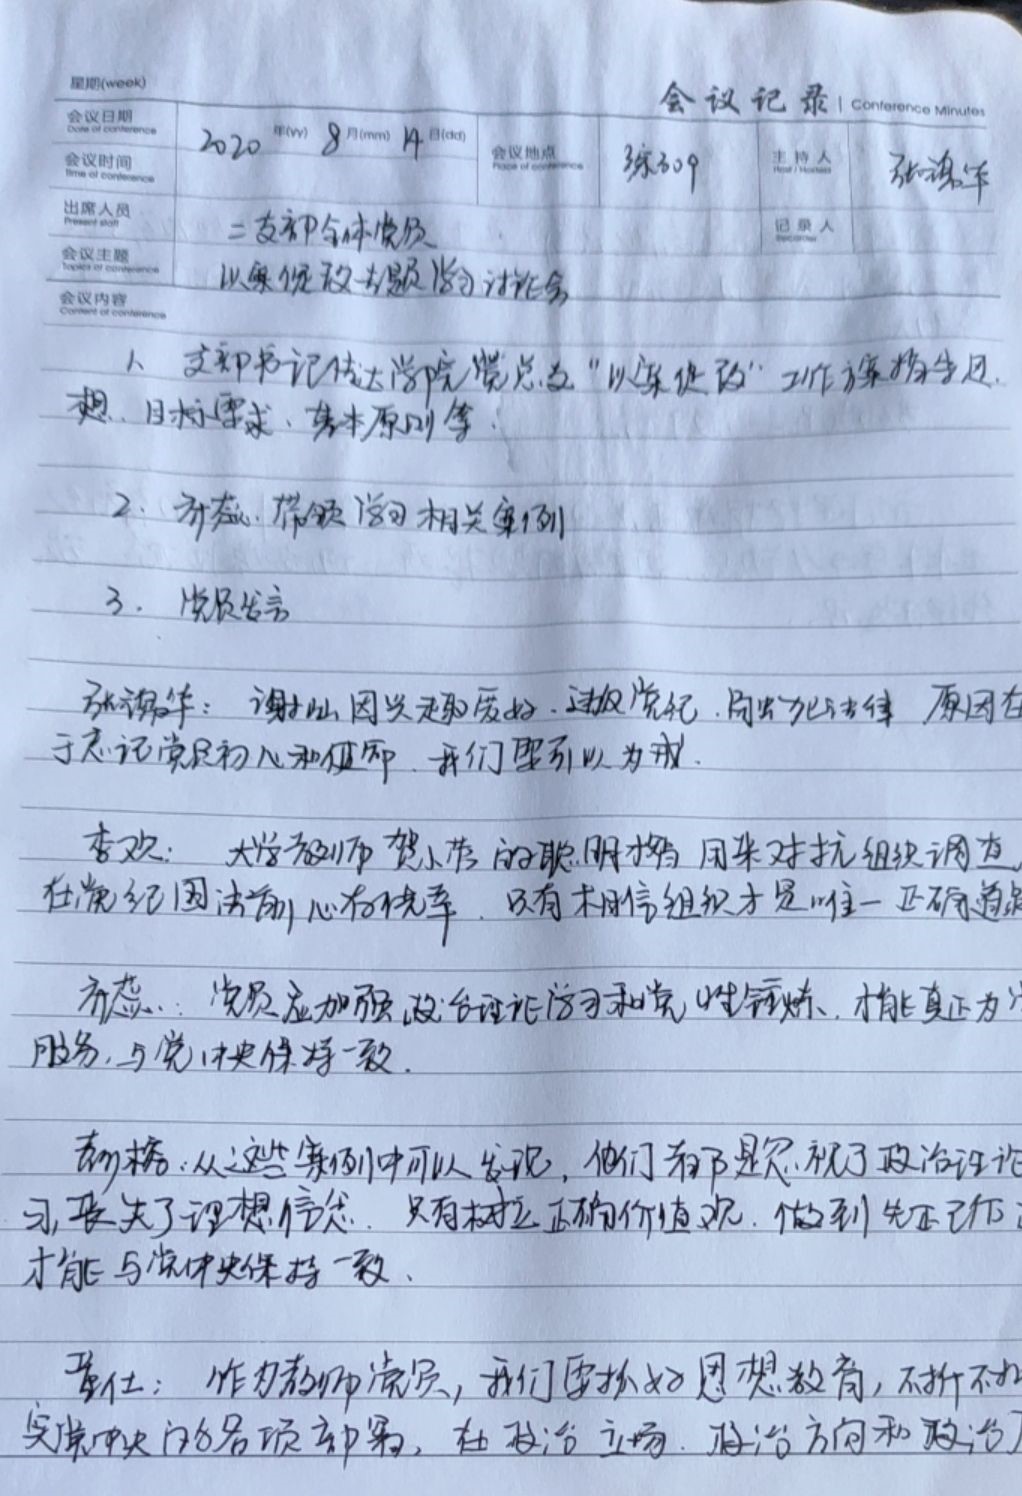 星期(week)
会议记录 | Conference Minutes
会议日期 Date of conference 2020 年(yy) 8 月(mm) 14 日(dd)
会议地点 Place of conference 综309
主持人 Host / Hostess 张
会议时间 Time of conference
出席人员 Present staff 二支部全体党员
记录人 Recorder
会议主题 Topics of conference 以案促改专题学习讨论会
会议内容 Content of conference
1、支部书记传达学院党总支“以案促改”工作方案指导思
想、目标要求、基本原则等.
2. 带领学习相关案例
3. 党员发言
张 华: 因兴趣爱好、违反党纪、 法律 原因在
于忘记党员初心和使命、我们要引以为戒.
李欢: 大学教师贺小 的聪明才 用来对抗组织调查、
在党纪国法前心存侥幸、只有相信组织才是唯一正确道路
党员应加强政治理论学习和党性锤炼、才能真正为
服务,与党中央保持一致.
从这些案例中可以发现,他们都是忽视了政治理论
习,丧失了理想信念、只有树立正确价值观、做到先正己
才能与党中央保持一致.
董仕: 作为教师党员,我们要抓好思想教育,不折不扣
实党中央的各项部署,在政治立场、政治方向和政治